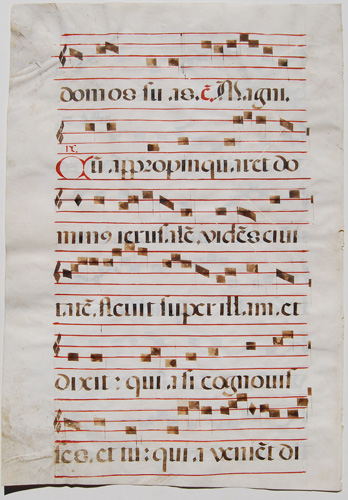 domos suas. c̄. Magn̄.
ix.
Cū appropinquaret do
minꝰ ierusalē, vidēs ciui
tatē, fleuit super illam, et
dixit: quia si cognouis
ses, et tu: quia veniēt di